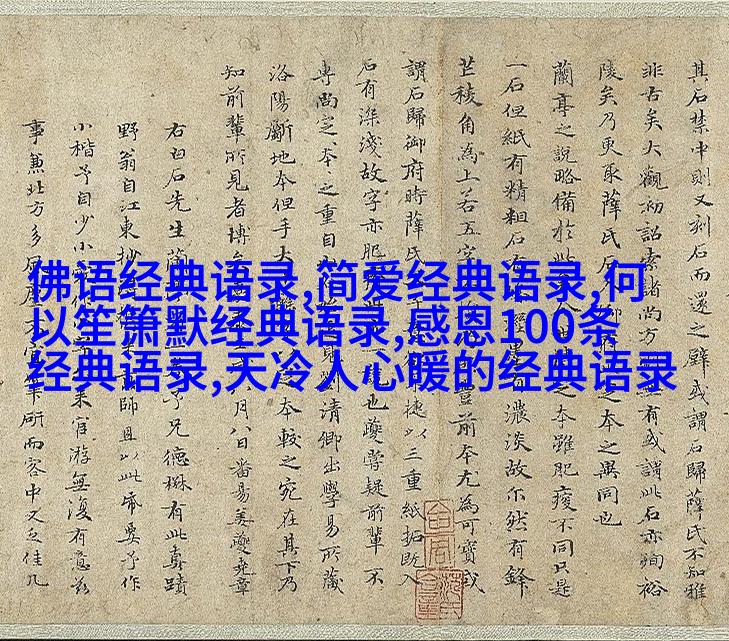 佛语经典语录,简爱经典语录,何
以笙箫默经典语录,感恩100条
经典语录,天冷人心暖的经典语录
其石禁中則又刻石而還之壁或謂石歸薛氏不知雅
誰古矣大觀初詔索諸尚方無有或謂此石亦殉裕
陵矣乃更取薛氏石之本之異同也
蘭亭之說略備於此之本雖肥瘦不同只是
一石但紙有精粗石有墨有濃淡故尓然有鋒
芒稜角為上若五字豐前本尤為可寶或
謂石歸御府時薛氏捷以三重紙拓既入
石有深淺故字亦肥也夔嘗疑前輩不
專尚定本之重自清卿出學易所藏
洛陽斸地本但手大之本較之宛在其下乃
知前輩所見者博月八日番易姜夔堯章
右白石先生蘭予兄德楙有此真蹟
野翁自江東抄師且以此帋要予作
小楷予自少小來官游無復有意茲
事兼北方多風筆研而容中又乏佳几